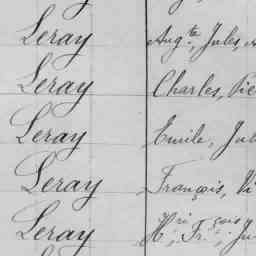 Leray Aug.te, Jules,
Leray Charles,
Leray Emile,
Leray François,
Leray H.ri, Fr.çois,